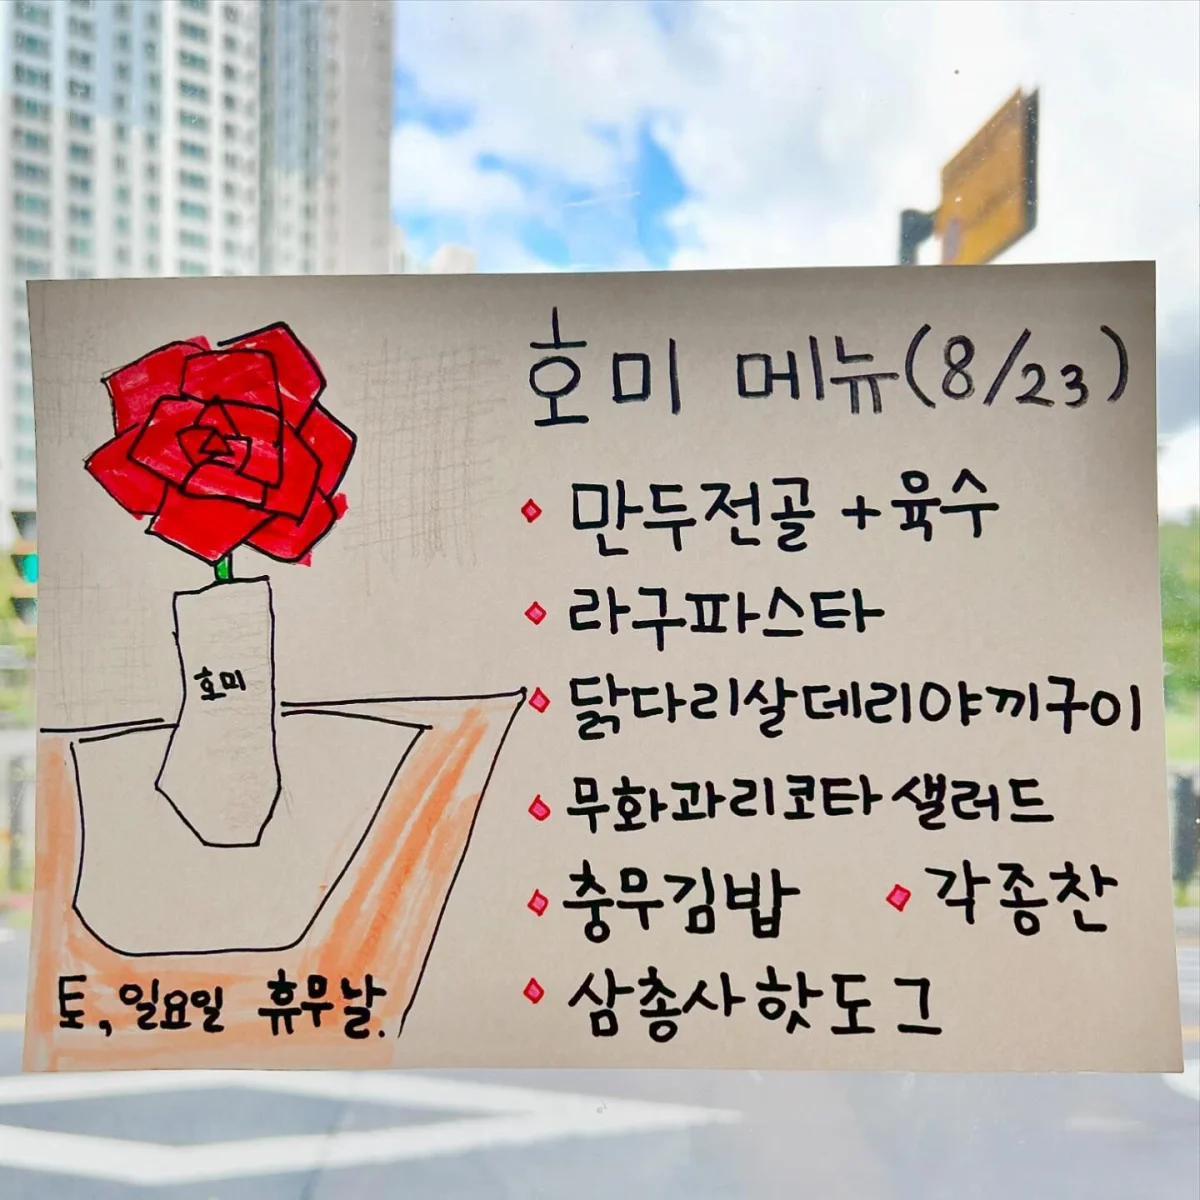 호미 메뉴(8/23)
만두전골 + 육수
라구파스타
닭다리살데리야끼구이
무화과리코타 샐러드
충무김밥
각종찬
삼총사핫도그
호미
토, 일요일 휴무날.